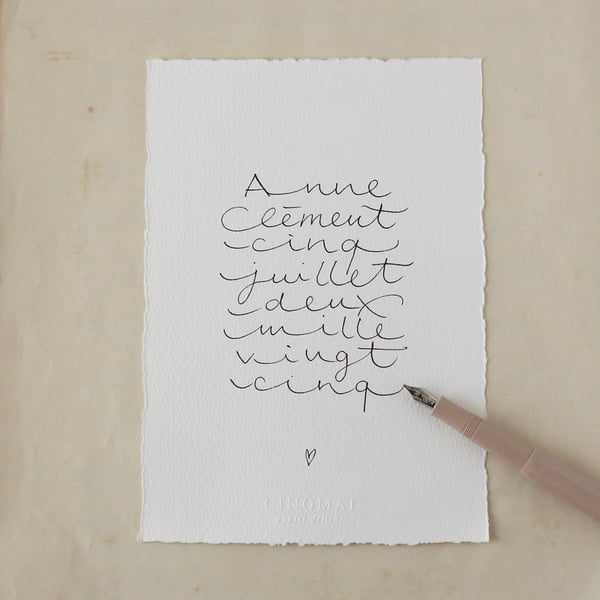 Anne
Clément
cinq
juillet
deux
mille
vingt
cinq
CINQMAI